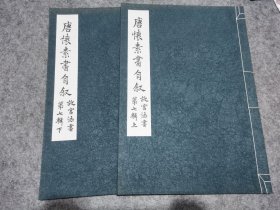 唐懷素書自敘
故宮法書
第七輯下
唐懷素書自敘
故宮法書
第七輯上